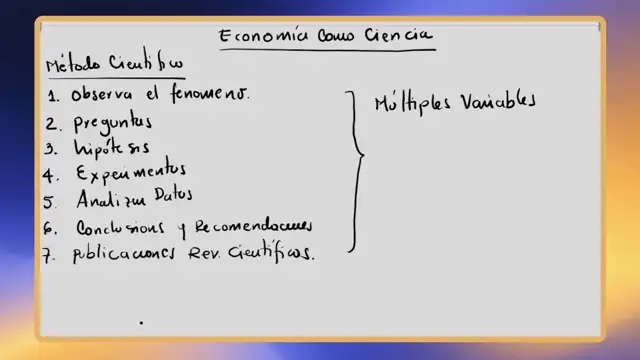 Economía Como Ciencia
Método Científico
1. Observa el fenomeno.
2. Preguntas
3. Hipótesis
4. Experimentos
5. Analizar Datos
6. Conclusions y Recomendaciones
7. Publicaciones Rev. Científicas.
Múltiples Variables